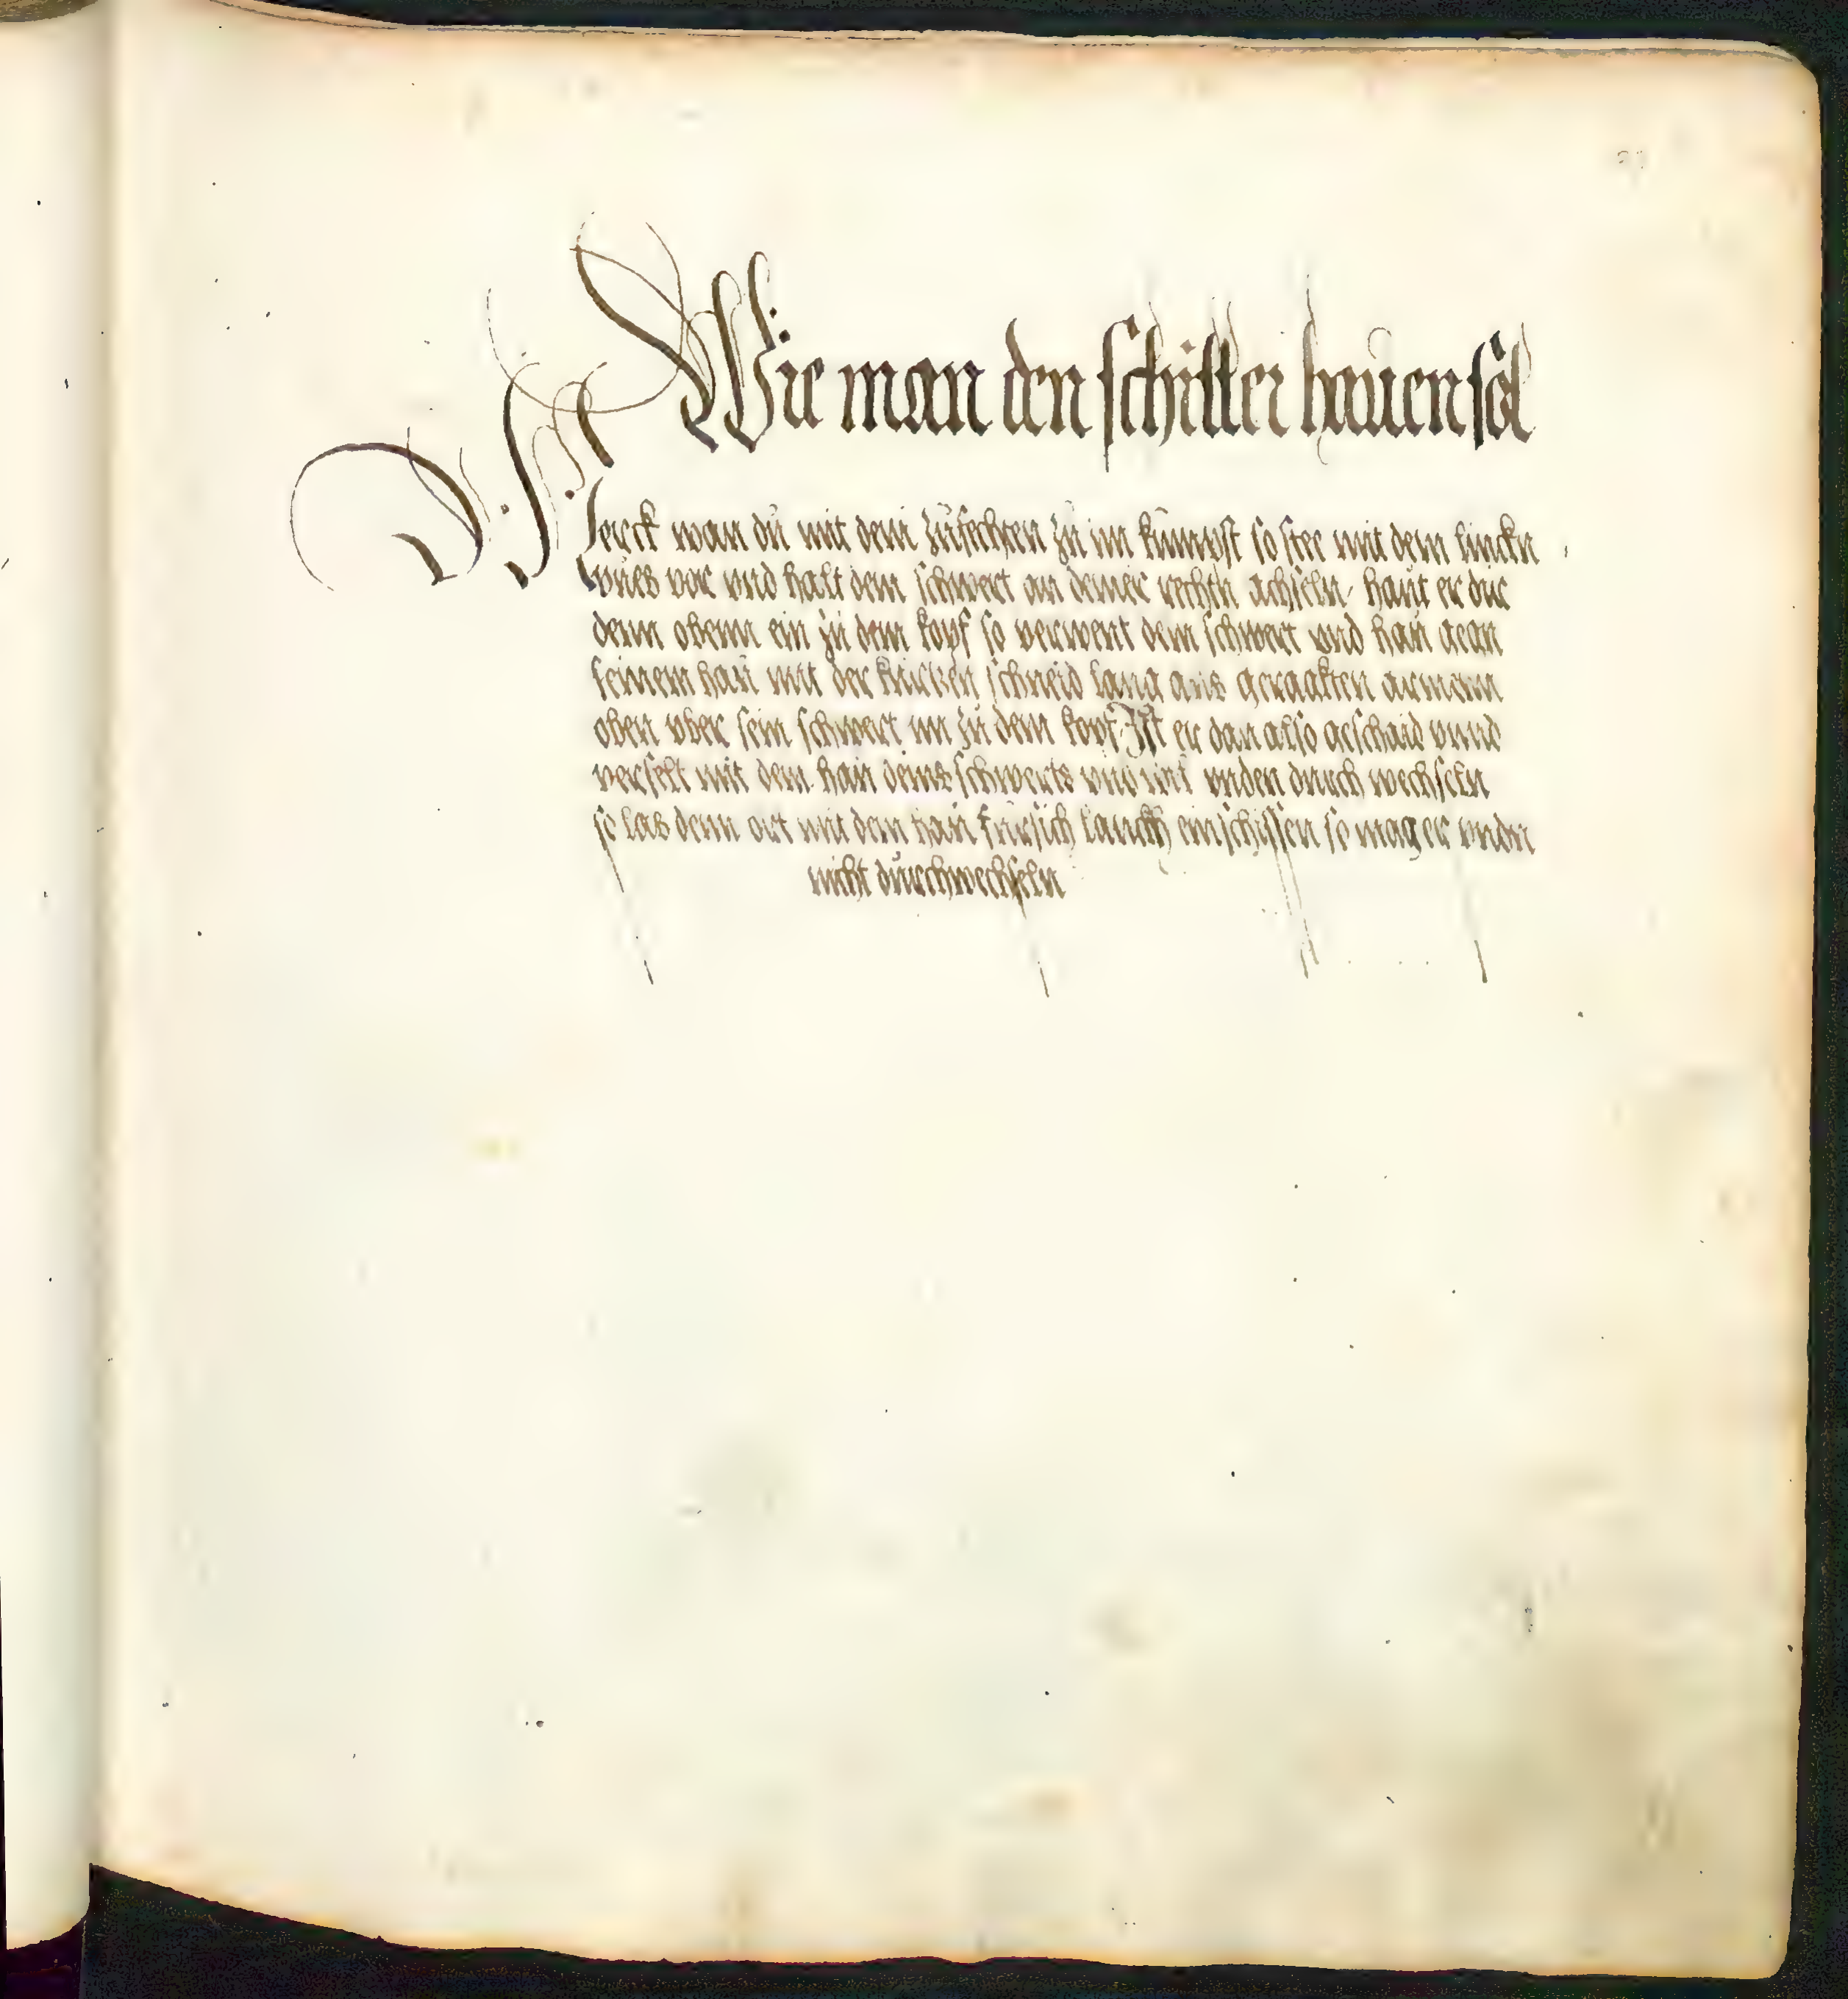 Wie man den schiller hauen sol
Merck wan du mit dem zufechten zu im kumpst so stee mit dem linckn
vues vor vnd halt dein schwert an deiner rechtn achseln haut er dir
denn obenn ein zu dem kopf so verwent dein schwert vnd hau gegn
seinem hau mit der kurtzen schneid lang aus geragkten armenn
oben vber sein schwert im zu dem kopf Ist er dan also geschaid vnnd
verselt mit dem hau deins schwerts vnd wil vnden durch wechseln
so las denn ort mit dem hau fursich lanckh einschissen so mag er vndn
nicht durchwechseln